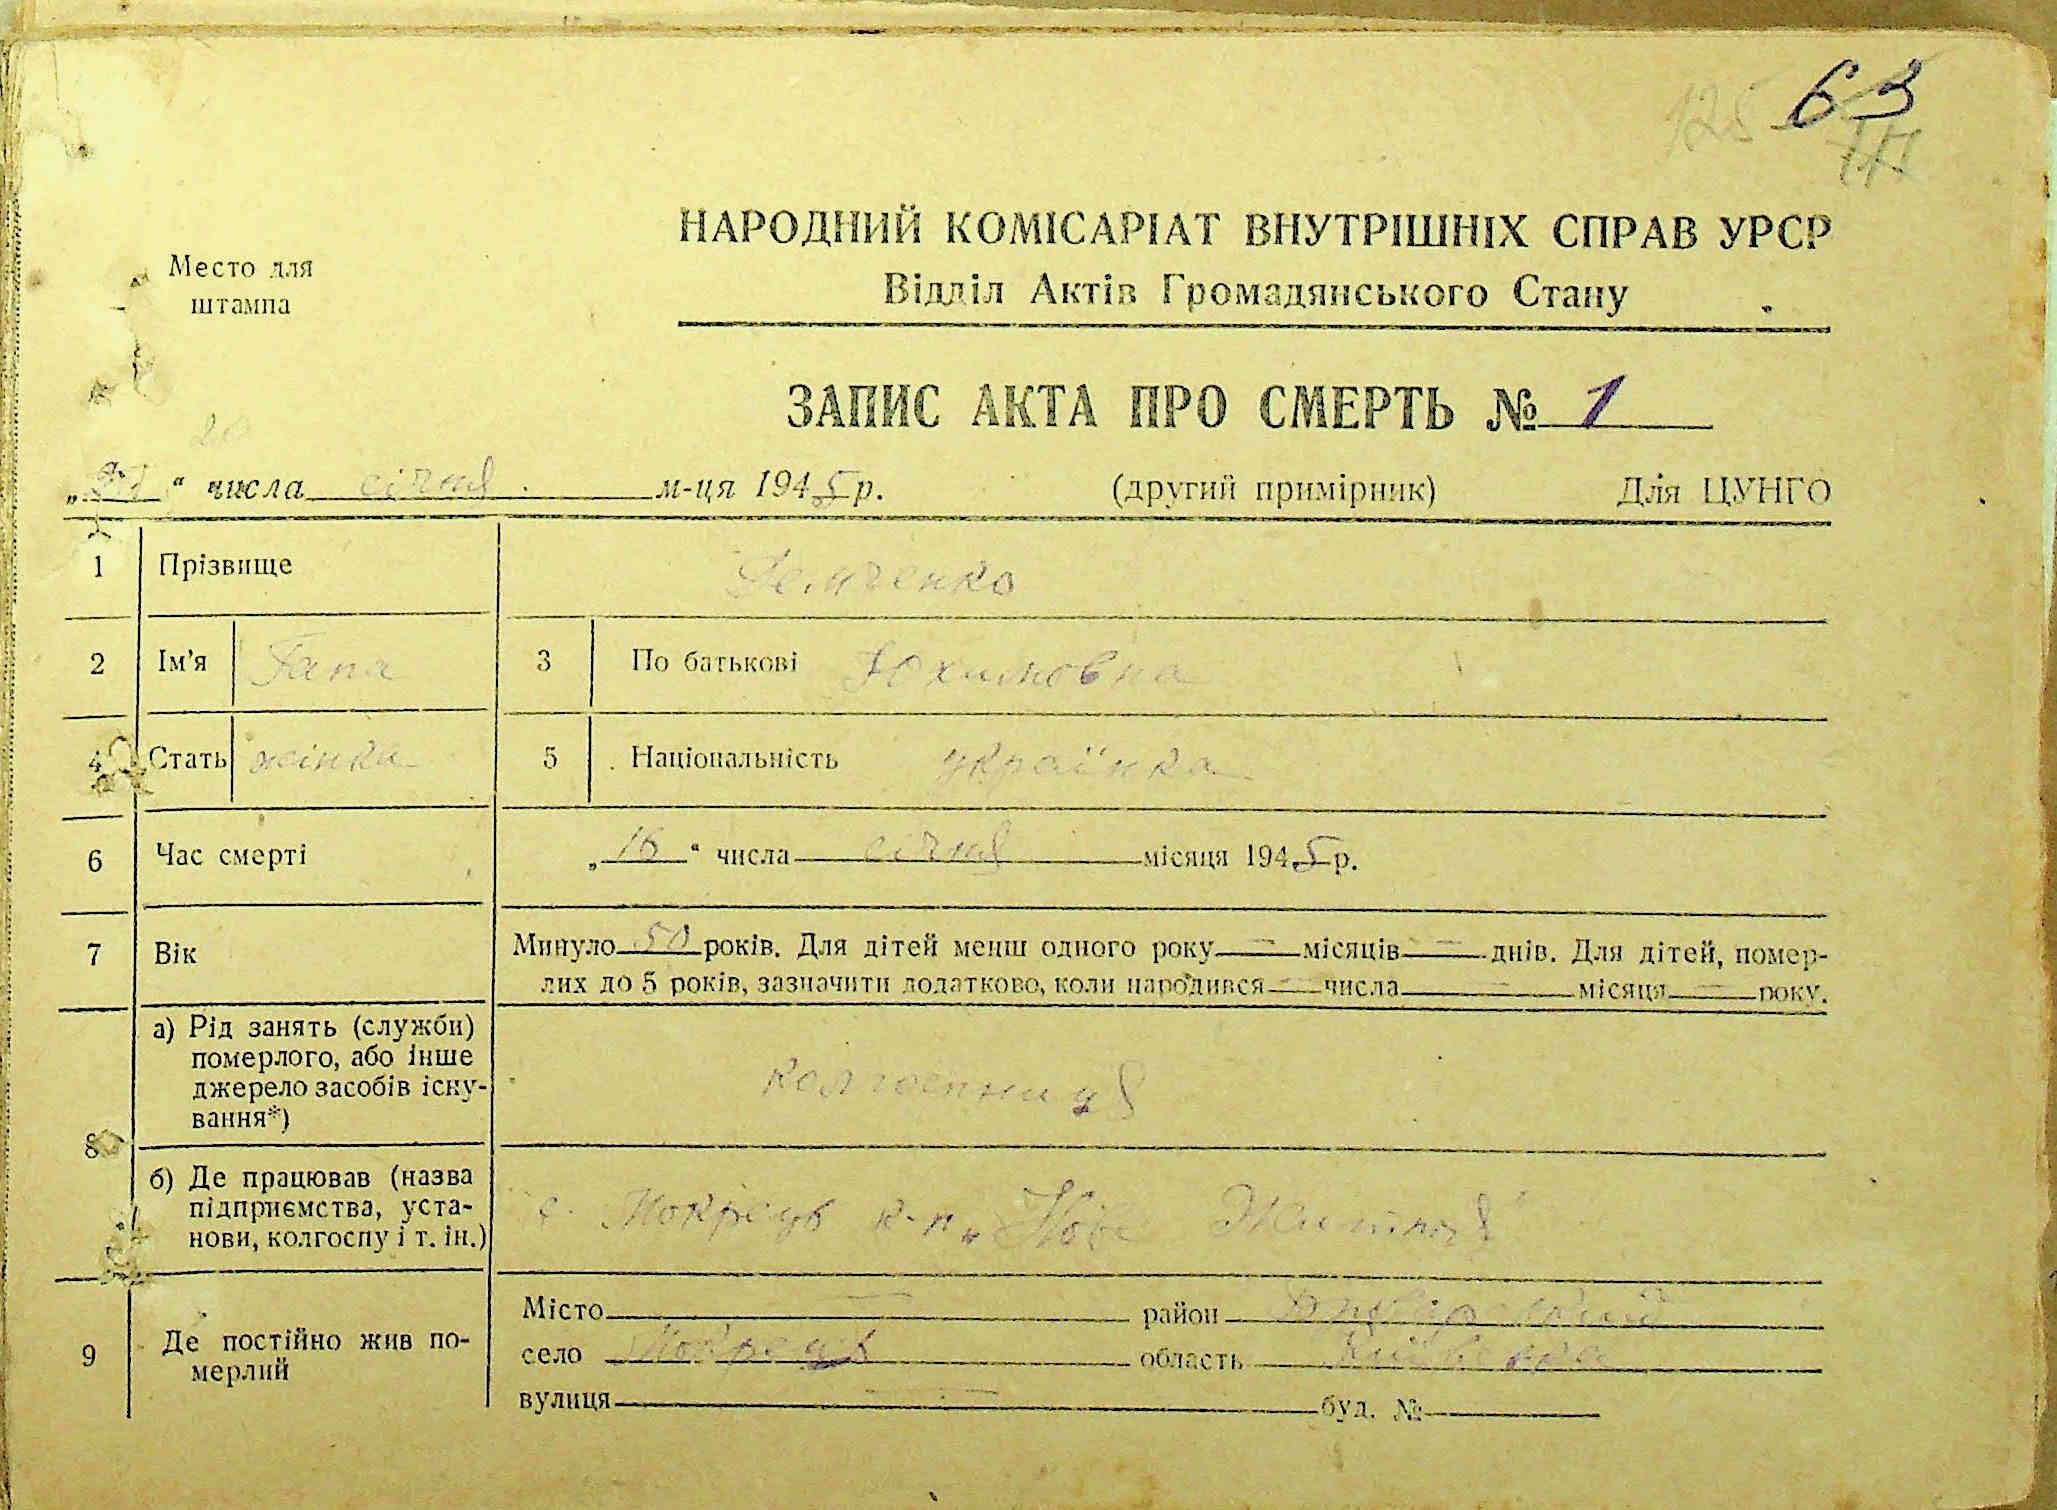 125 63
НАРОДНИЙ КОМІСАРІАТ ВНУТРІШНІХ СПРАВ УРСР
Место для штампа
Відділ Актів Громадянського Стану
ЗАПИС АКТА ПРО СМЕРТЬ № 1
„ “ числа січня м-ця 1945 р. (другий примірник) Для ЦУНГО
1 Прізвище
2 Ім'я Гапа 3 По батькові Юхимовна
4 Стать жінка 5 Національність українка
6 Час смерті „16“ числа січня місяця 1945 р.
7 Вік Минуло 50 років. Для дітей менш одного року — місяців — днів. Для дітей, помер-
лих до 5 років, зазначити додатково, коли народився — числа — місяця — року.
8 а) Рід занять (служби)
померлого, або інше
джерело засобів існу-
вання*) колгоспниця
б) Де працював (назва
підприємства, уста-
нови, колгоспу і т. ін.) с. Мокрець к-п „Нове Життя"
9 Де постійно жив по-
мерлий
Місто — район
село Мокрець область Київська
вулиця — буд. №